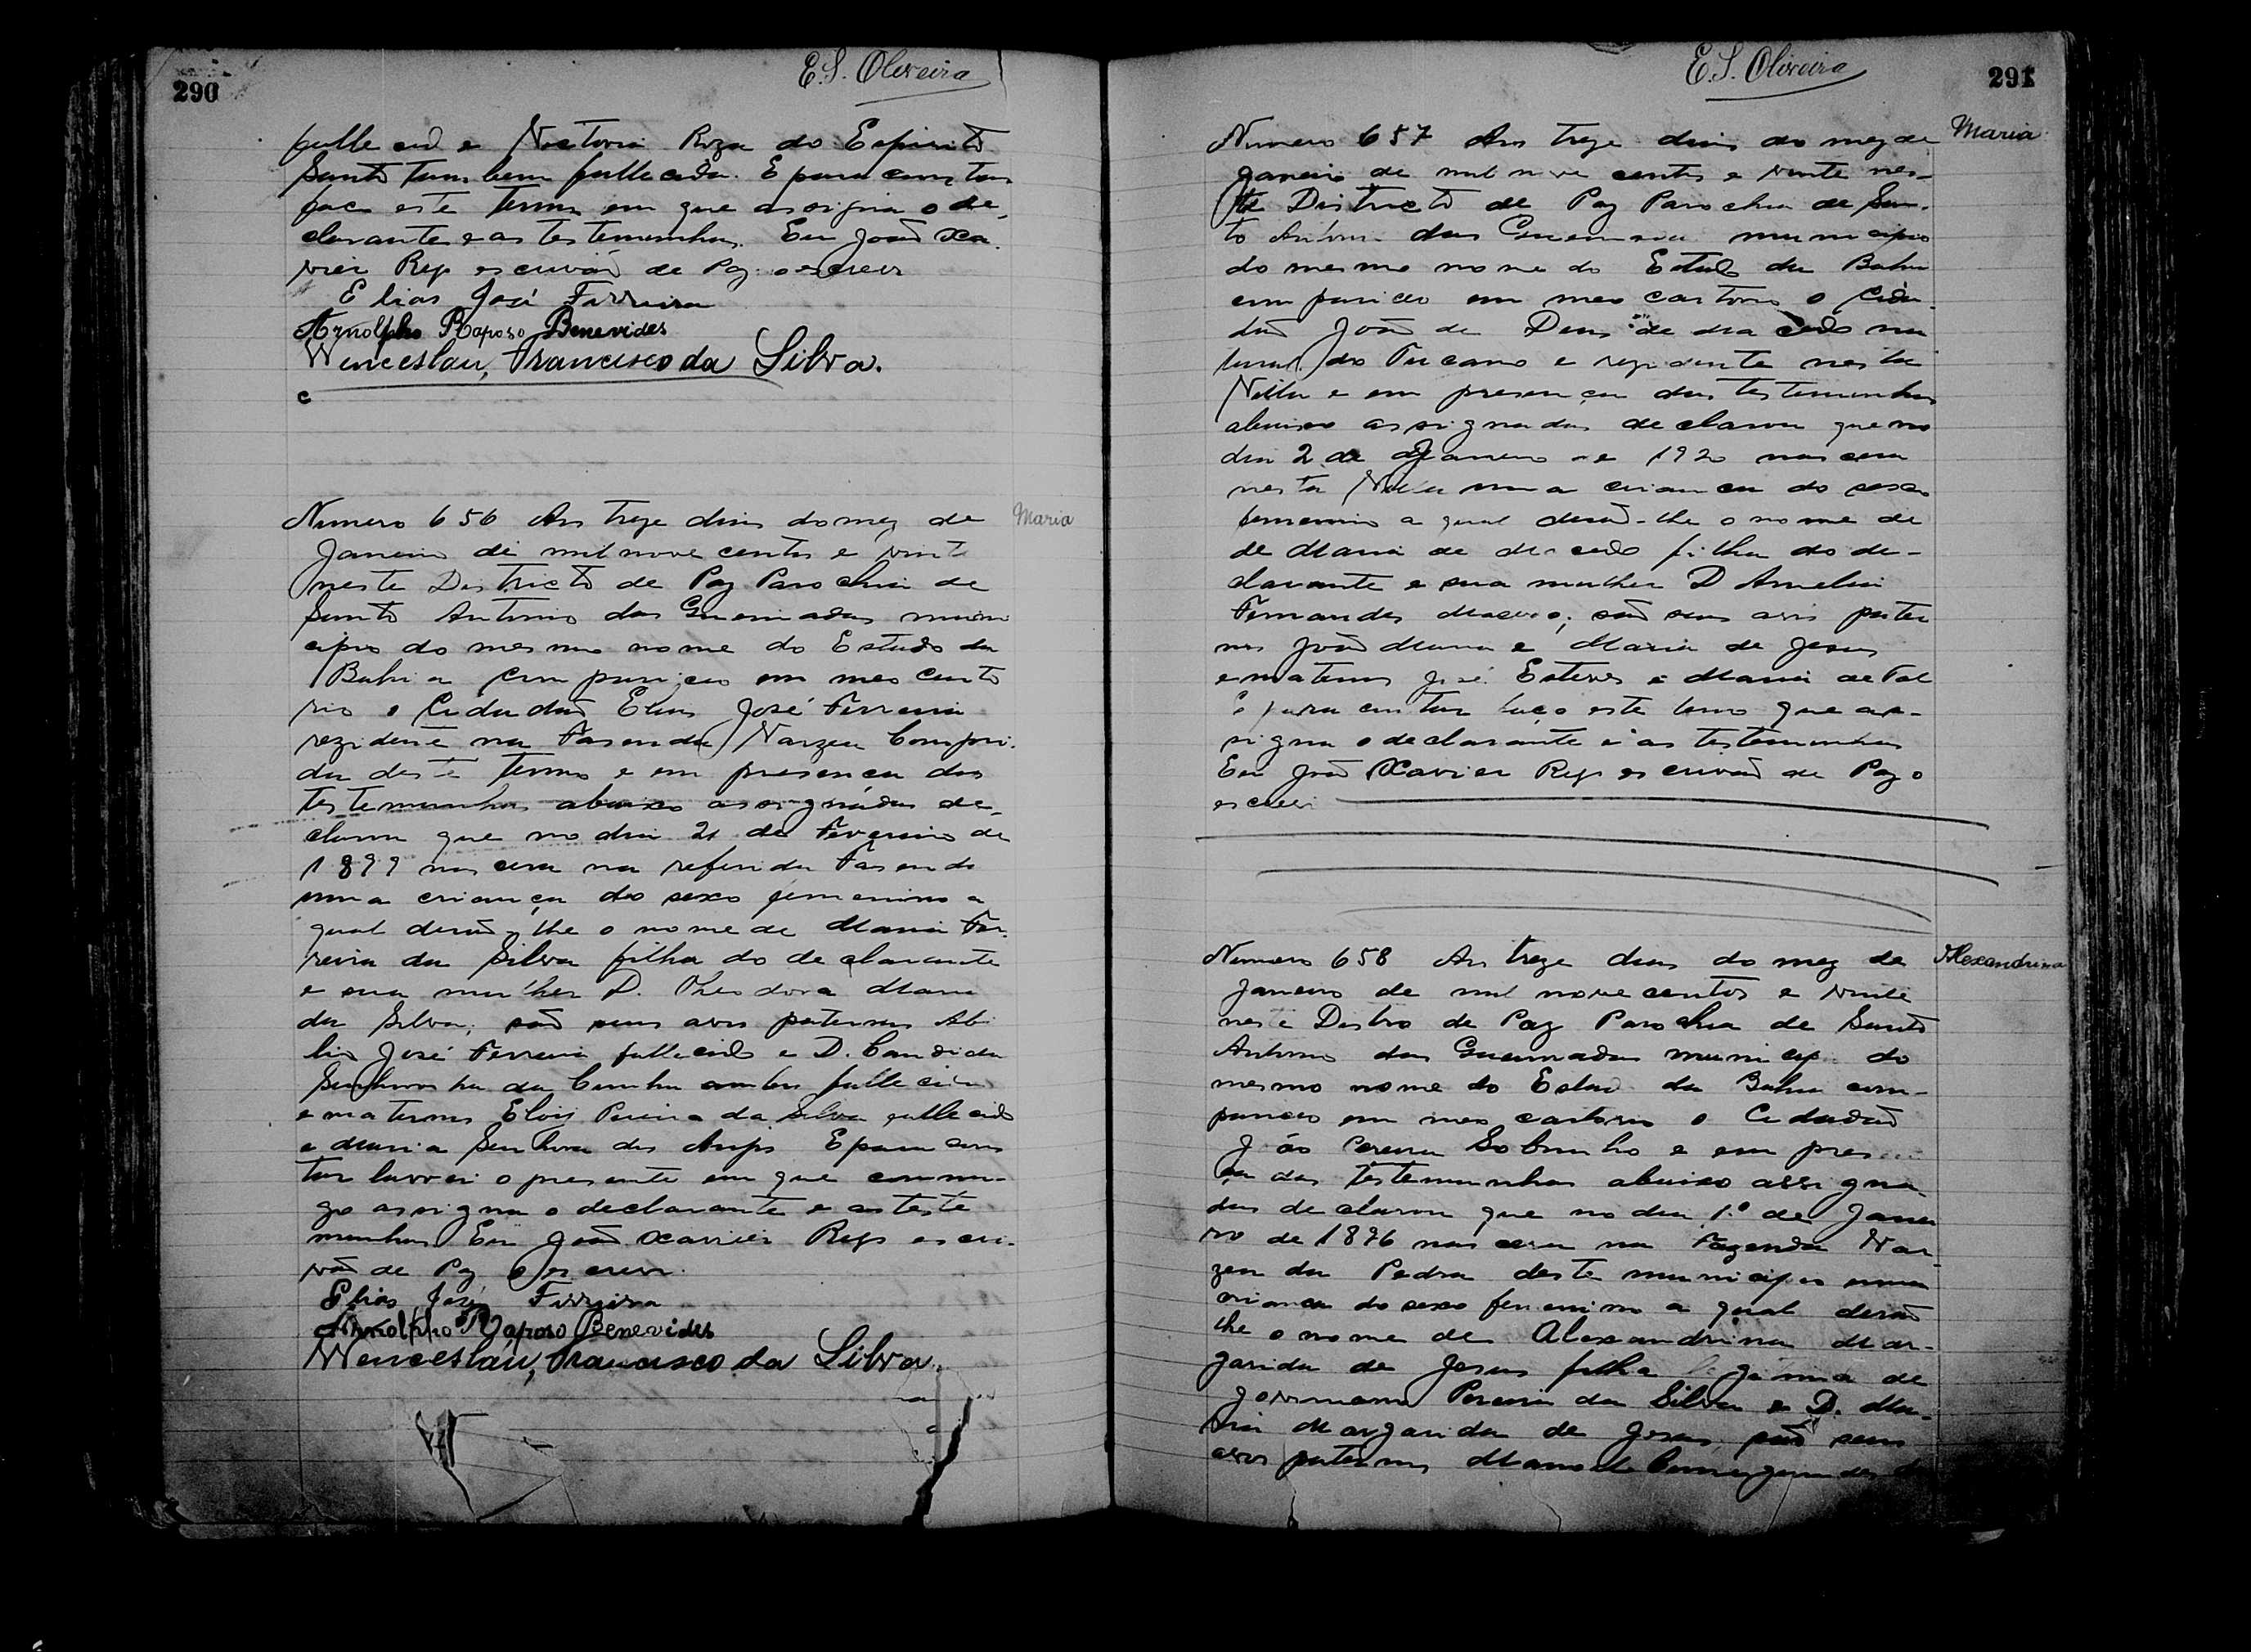 290
E.S. Oliveira
fallecido e Victoria Roza do Espirito
Santo tambem fallecida. E para constar
faço este termo em que assigna o de-
clarante e as testemunhas. Eu João Xa-
vier Rego escrivão de Paz o escrevi
Elias José Ferreira
Arnolpho Raposo Benevides
Wenceslau, Francisco da Silva.
Numero 656 Aos treze dias do mez de
Maria
Janeiro de mil nove centos e vinte
neste Districto de Paz Parochia de
Santo Antonio das Queimadas muni
cipio do mesmo nome do Estado da
Bahia compareceo em meo carto
rio o Cidadão Elias José Ferreira
rezidente na Fasenda Varzea Compri-
da deste termo e em presença das
testemunhas abaixo assignadas de-
clarou que no dia 21 de Fevereiro de
1899 nascera na referida Fasenda
uma criança do sexo femenino a
qual derão-lhe o nome de Maria Fer-
reira da Silva filha do declarante
e sua mulher D. Theodora Maria
da Silva, são seus avos paternos Abi
lio José Ferreira fallecido e D. Candida
Senhorinha da Cunha ambos fallecidos
e maternos Eloy Pereira da Silva fallecido
e Maria Senhora dos Anjos E para cons
tar lavrei o presente em que commi-
go assigna o declarante e as teste
munhas Eu João Xavier Rego escri-
vão de Paz o escrevi.
Elias José Ferreira
Arnolpho Raposo Benevides
Wenceslau, Francisco da Silva.
E.S. Oliveira
291
Numero 657 Aos treze dias do mez de
Maria
Janeiro de mil nove centos e vinte nes-
te Districto de Paz Parochia de San-
to Antonio das Queimadas municipio
do mesmo nome do Estado da Bahia
compareceo em meo cartorio o Cida-
dão João de Deus de Macedo na
tural do Tucano e rezidente nesta
Villa e em presença das testemunhas
abaixo assignadas declarou que no
dia 2 de Janeiro de 1920 nascera
nesta Villa uma criança do sexo
femenino a qual derão-lhe o nome de
de Maria de Macedo filha do de-
clarante e sua mulher D Amelia
Fernandes Macedo; são seus avos pater
nos João e Maria de Jesus
e maternos José Esteves e Maria de Tal
E para constar faço este termo que as-
signa o declarante e as testemunhas
Eu João Xavier Rego escrivão de Paz o
escrevi
Numero 658 Aos treze dias do mez de
Alexandrina
Janeiro de mil nove centos e vinte
neste Distro de Paz Parochia de Santo
Antonio das Queimadas municip do
mesmo nome do Estado da Bahia com-
pareceo em meo cartorio o Cidadão
João Pereira Sobrinho e em presen
ça das testemunhas abaixo assigna-
das declarou que no dia 1.º de Janei
ro de 1896 nascera na Fazenda Var
zea da Pedra deste municipio uma
criança do sexo femenino a qual derão
lhe o nome de Alexandrina Mar-
garida de Jesus filha legitima de
Pereira da Silva e D. Ma-
ria Margarida de Jesus, são seus
avos paternos Manoel